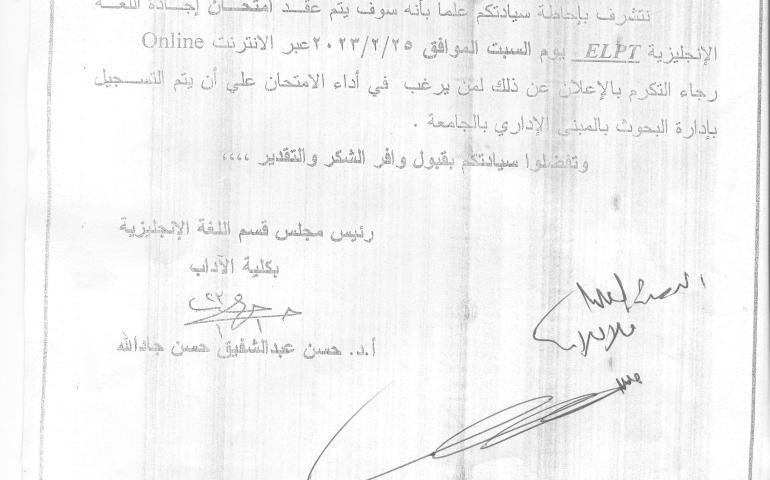 نتشرف بإحاطة سيادتكم علماً بأنه سوف يتم عقد امتحان إجادة اللغة
الإنجليزية ELPT يوم السبت الموافق ٢٠٢٣/٢/٢٥ عبر الانترنت Online
رجاء التكرم بالإعلان عن ذلك لمن يرغب في أداء الامتحان علي أن يتم التسجيل
بإدارة البحوث بالمبنى الإداري بالجامعة .
وتفضلوا سيادتكم بقبول وافر الشكر والتقدير ،،،،
رئيس مجلس قسم اللغة الإنجليزية
بكلية الآداب
أ.د. حسن عبدالشفيق حسن جادالله